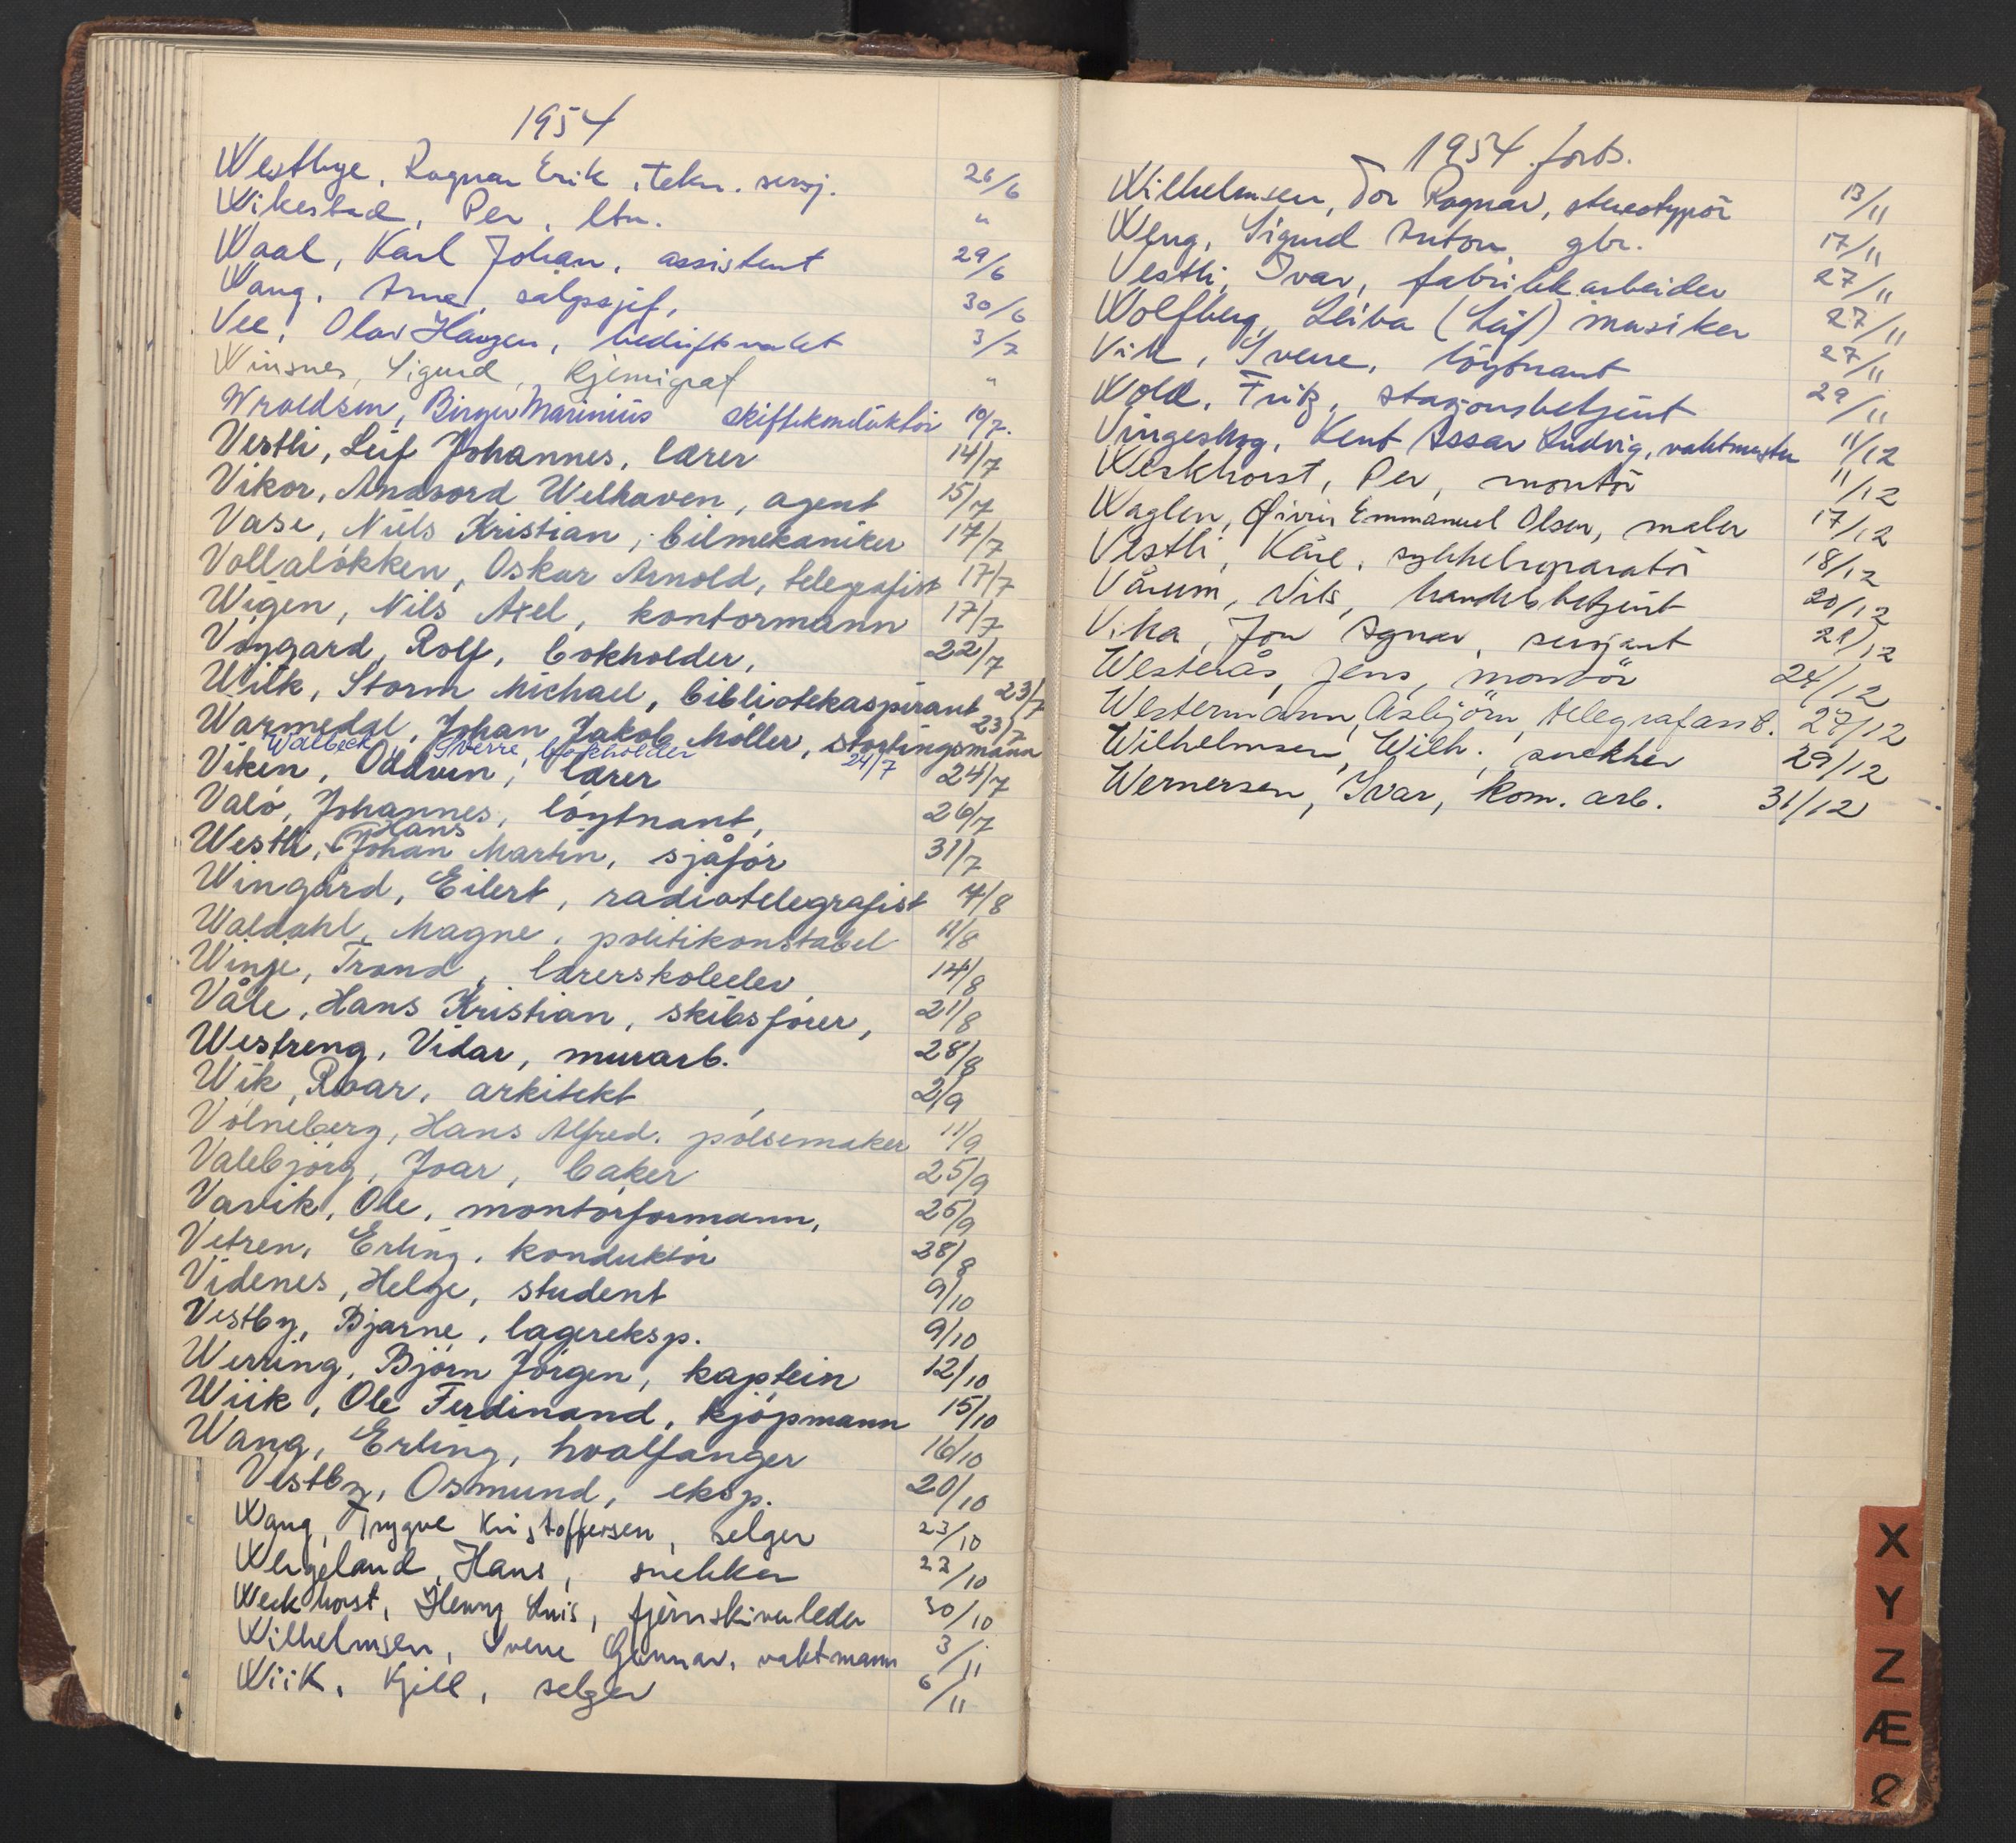 1954
Westbye, Ragnar Erik, tekn. sersj. 26/6
Wikestad, Per, ltn. "
Waal, Karl Johan, assistent 29/6
Wang, Arne, salgssjef, 30/6
Vee, Olav Haugen, bedriftsvakt 3/7
Winsnes, Sigurd, Kjemigraf "
Wroldsen, Birger Marinius skiftekonduktör 10/7.
Vestli, Leif Johannes, lærer 14/7
Vikor, Andvord Welhaven, agent 15/7
Vase, Niels Kristian, bilmekaniker 17/7
Vollaløkken, Oskar Arnold, telegrafist 17/7
Wigen, Nils Axel, kontormann 17/7
Vøygard, Rolf, bokholder, 22/7
Wiik, Storm Michael, bibliotekaspirant 23/7
Warmedal, Johan Jakob Møller, stortingsmann 23/7
Walbeck, Sverre, bokholder 24/7
Viken, Oddvin, lærer 24/7
Valø, Johannes, løytnant, 26/7
Hans
Westli, Johan Martin, sjåfør 31/7
Wingård, Eilert, radiotelegrafist 7/8
Waldahl, Magne, politikonstabel 11/8
Winje, Trond, lærerskoleelev 14/8
Våle, Hans Kristian, skibsfører, 21/8
Westreng, Vidar, murarb. 28/8
Wik, Roar, arkitekt 2/9
Völneberg, Hans Alfred. pølsemaker 11/9
Valebjørg, Joar, baker 25/9
Varvik, Ole, montørformann, 25/9
Vetren, Erling, konduktør 28/9
Videnes, Helge, student 9/10
Vestby, Bjarne, lagereksp. 9/10
Werring, Bjørn Jørgen, kaptein 12/10
Wiik, Ole Ferdinand, kjøpmann 15/10
Wang, Erling, hvalfanger 16/10
Vestby, Osmund, eksp. 20/10
Wang, Trygve Kristoffersen, selger 23/10
Wergeland, Hans, snekker 23/10
Werkhorst, Henny Luis, fjernskriverleder 30/10
Wilhelmsen, Sverre Gunnar, vaktmann 3/11
Wiik, Kjell, selger 6/11
1954 forts.
Wilhelmsen, Tor Ragnar, stereotypör 13/11
Weng, Sigurd Anton, gbr. 17/11
Vestli, Ivar, fabrikkarbeider 27/11
Wolfberg, Leiba (Leif) musiker 27/11
Vik, Sverre, löytnant 27/11
Wold, Fritz, stasjonsbetjent 29/11
Vingeskog, Kent Assar Ludvig, vaktmester 11/12
Werkhorst, Per, montör 11/12
Waglen, Øivin Emmanuel Olsen, maler 17/12
Vestli, Kåre, sykkelreparatör 18/12
Vårum, Nils, handelsbetjent 20/12
Vika, Jon Agnar, sersjant 21/12
Westerås, Jens, montör 24/12
Westermann, Asbjörn, telegrafass. 27/12
Wilhelmsen, Wilh., snekker 29/12
Wernersen, Ivar, kom. arb. 31/12
X
Y
Z
Æ
Ø